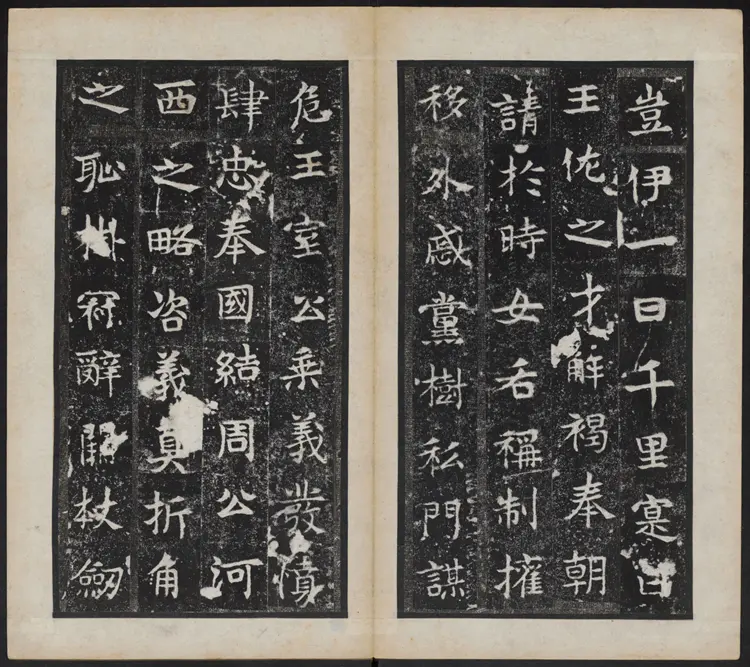 豈伊一日千里寔曰
王佐之才解褐奉朝
請於時女后稱制擁
移外戚黨樹私門謀
危王室公乘義發憤
肆忠奉國結周公河
西之略咨義真折角
之恥掛冠辭闕杖劔